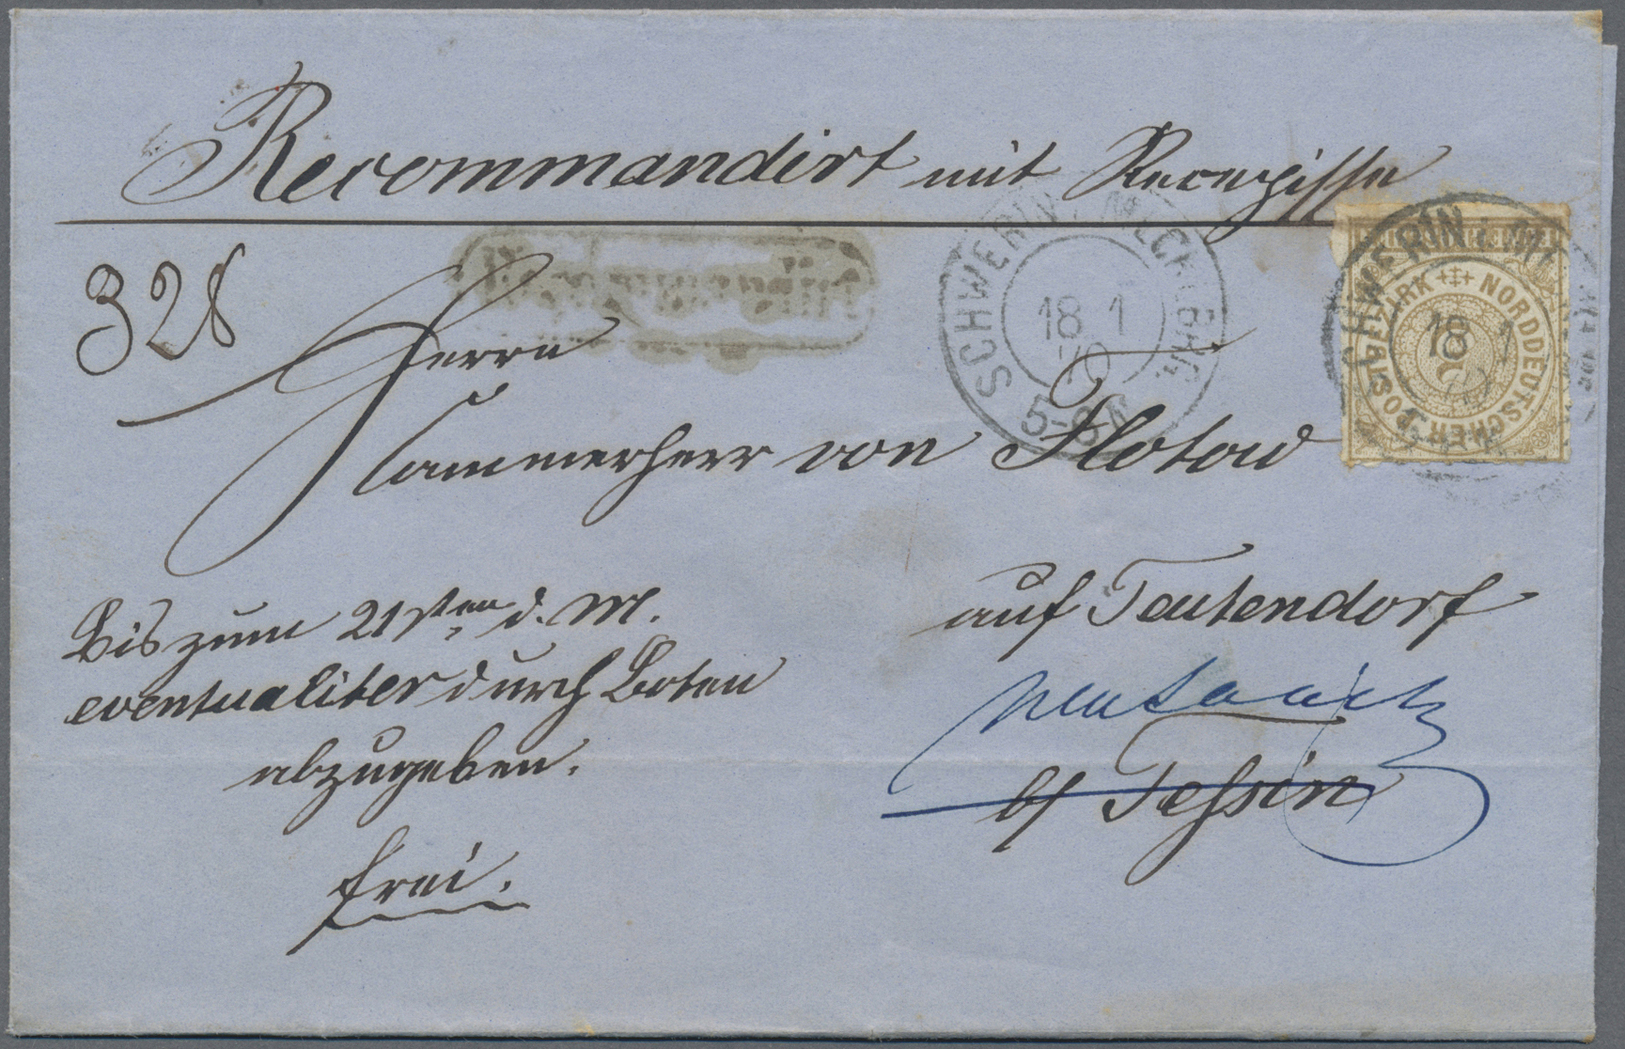 Recommandirt mit Recepisse
328
Herrn
Kammerherr von Flotow
SCHWERIN I. MECKLBNG.
18 1
70
5-6 N
SCHWERIN I. M
18 1
70
NORDDEUTSCHER POSTBEZIRK
auf Teutendorf
b/ Tessin
Bis zum 21sten d. M.
eventualiter durch Boten
abzugeben.
frei.